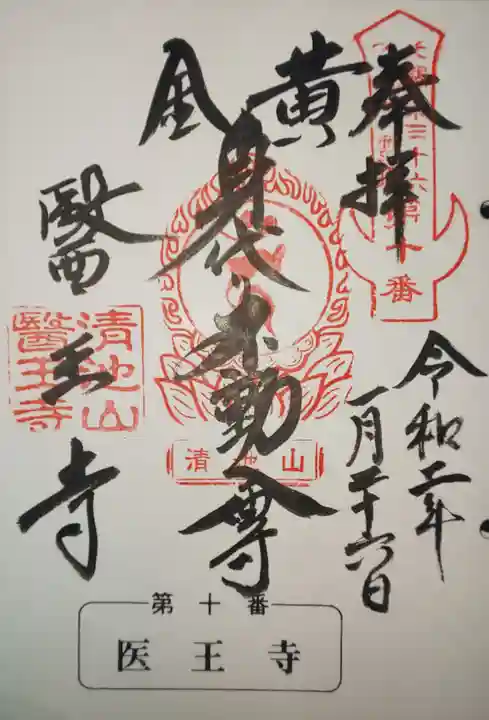 奉拝
令和二年
一月二十六日
黄金
身代不動尊
醫王寺
清池山
醫王寺
清池山
第十番
医王寺